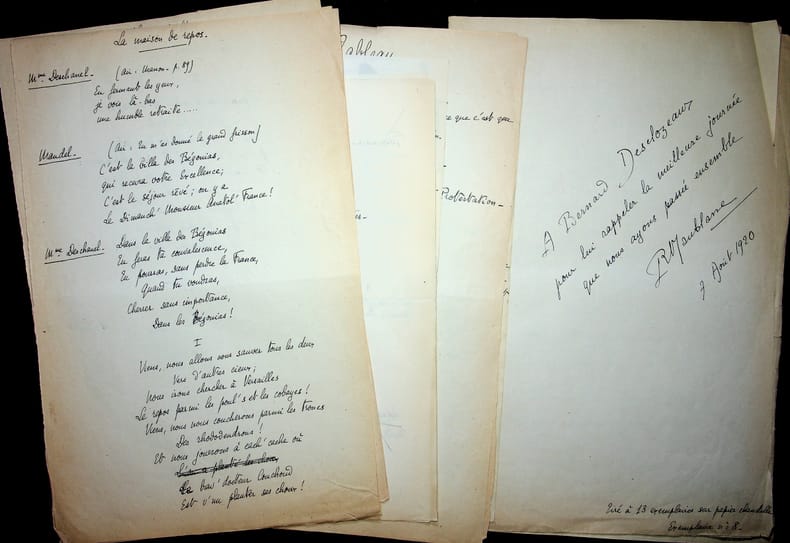 La maison de repos.
Mme Deschanel - (Air : Manon - p. 89)
En fermant les yeux,
je vois là-bas
une humble retraite.....
Mandel. - (Air : Tu m'as donné le grand frisson)
C'est la ville des Bégonias,
qui recevra votre Excellence ;
C'est le séjour rêvé ; on y a
Le Dimanch' Monsieur Anatol' France !
Mme Deschanel - Dans la ville des Bégonias
Tu feras ta convalescence,
Tu pourras, sans perdre la France,
Quand tu voudras,
Cherrer sans importance,
Dans les Bégonias !
I
Viens, nous allons nous sauver tous les deux
Vers d'autres cieux ;
Nous irons chercher à Versailles
Le repos parmi les poul's et les cobayes !
Viens, nous nous coucherons parmi les troncs
Des rhododendrons !
Et nous jouerons à cach' cache où
L'on a planté les choux,
Le bav' docteur Couchoud
Est v'nu planter ses choux !
Tableau
ce que c'est que
Protestation -
A Bernard Desclozeaux
pour lui rappeler la meilleure journée
que nous ayons passée ensemble
RMaublanc
7 Août 1920
Tiré à 13 exemplaires sur papier chandelle
Exemplaire n° 8 -